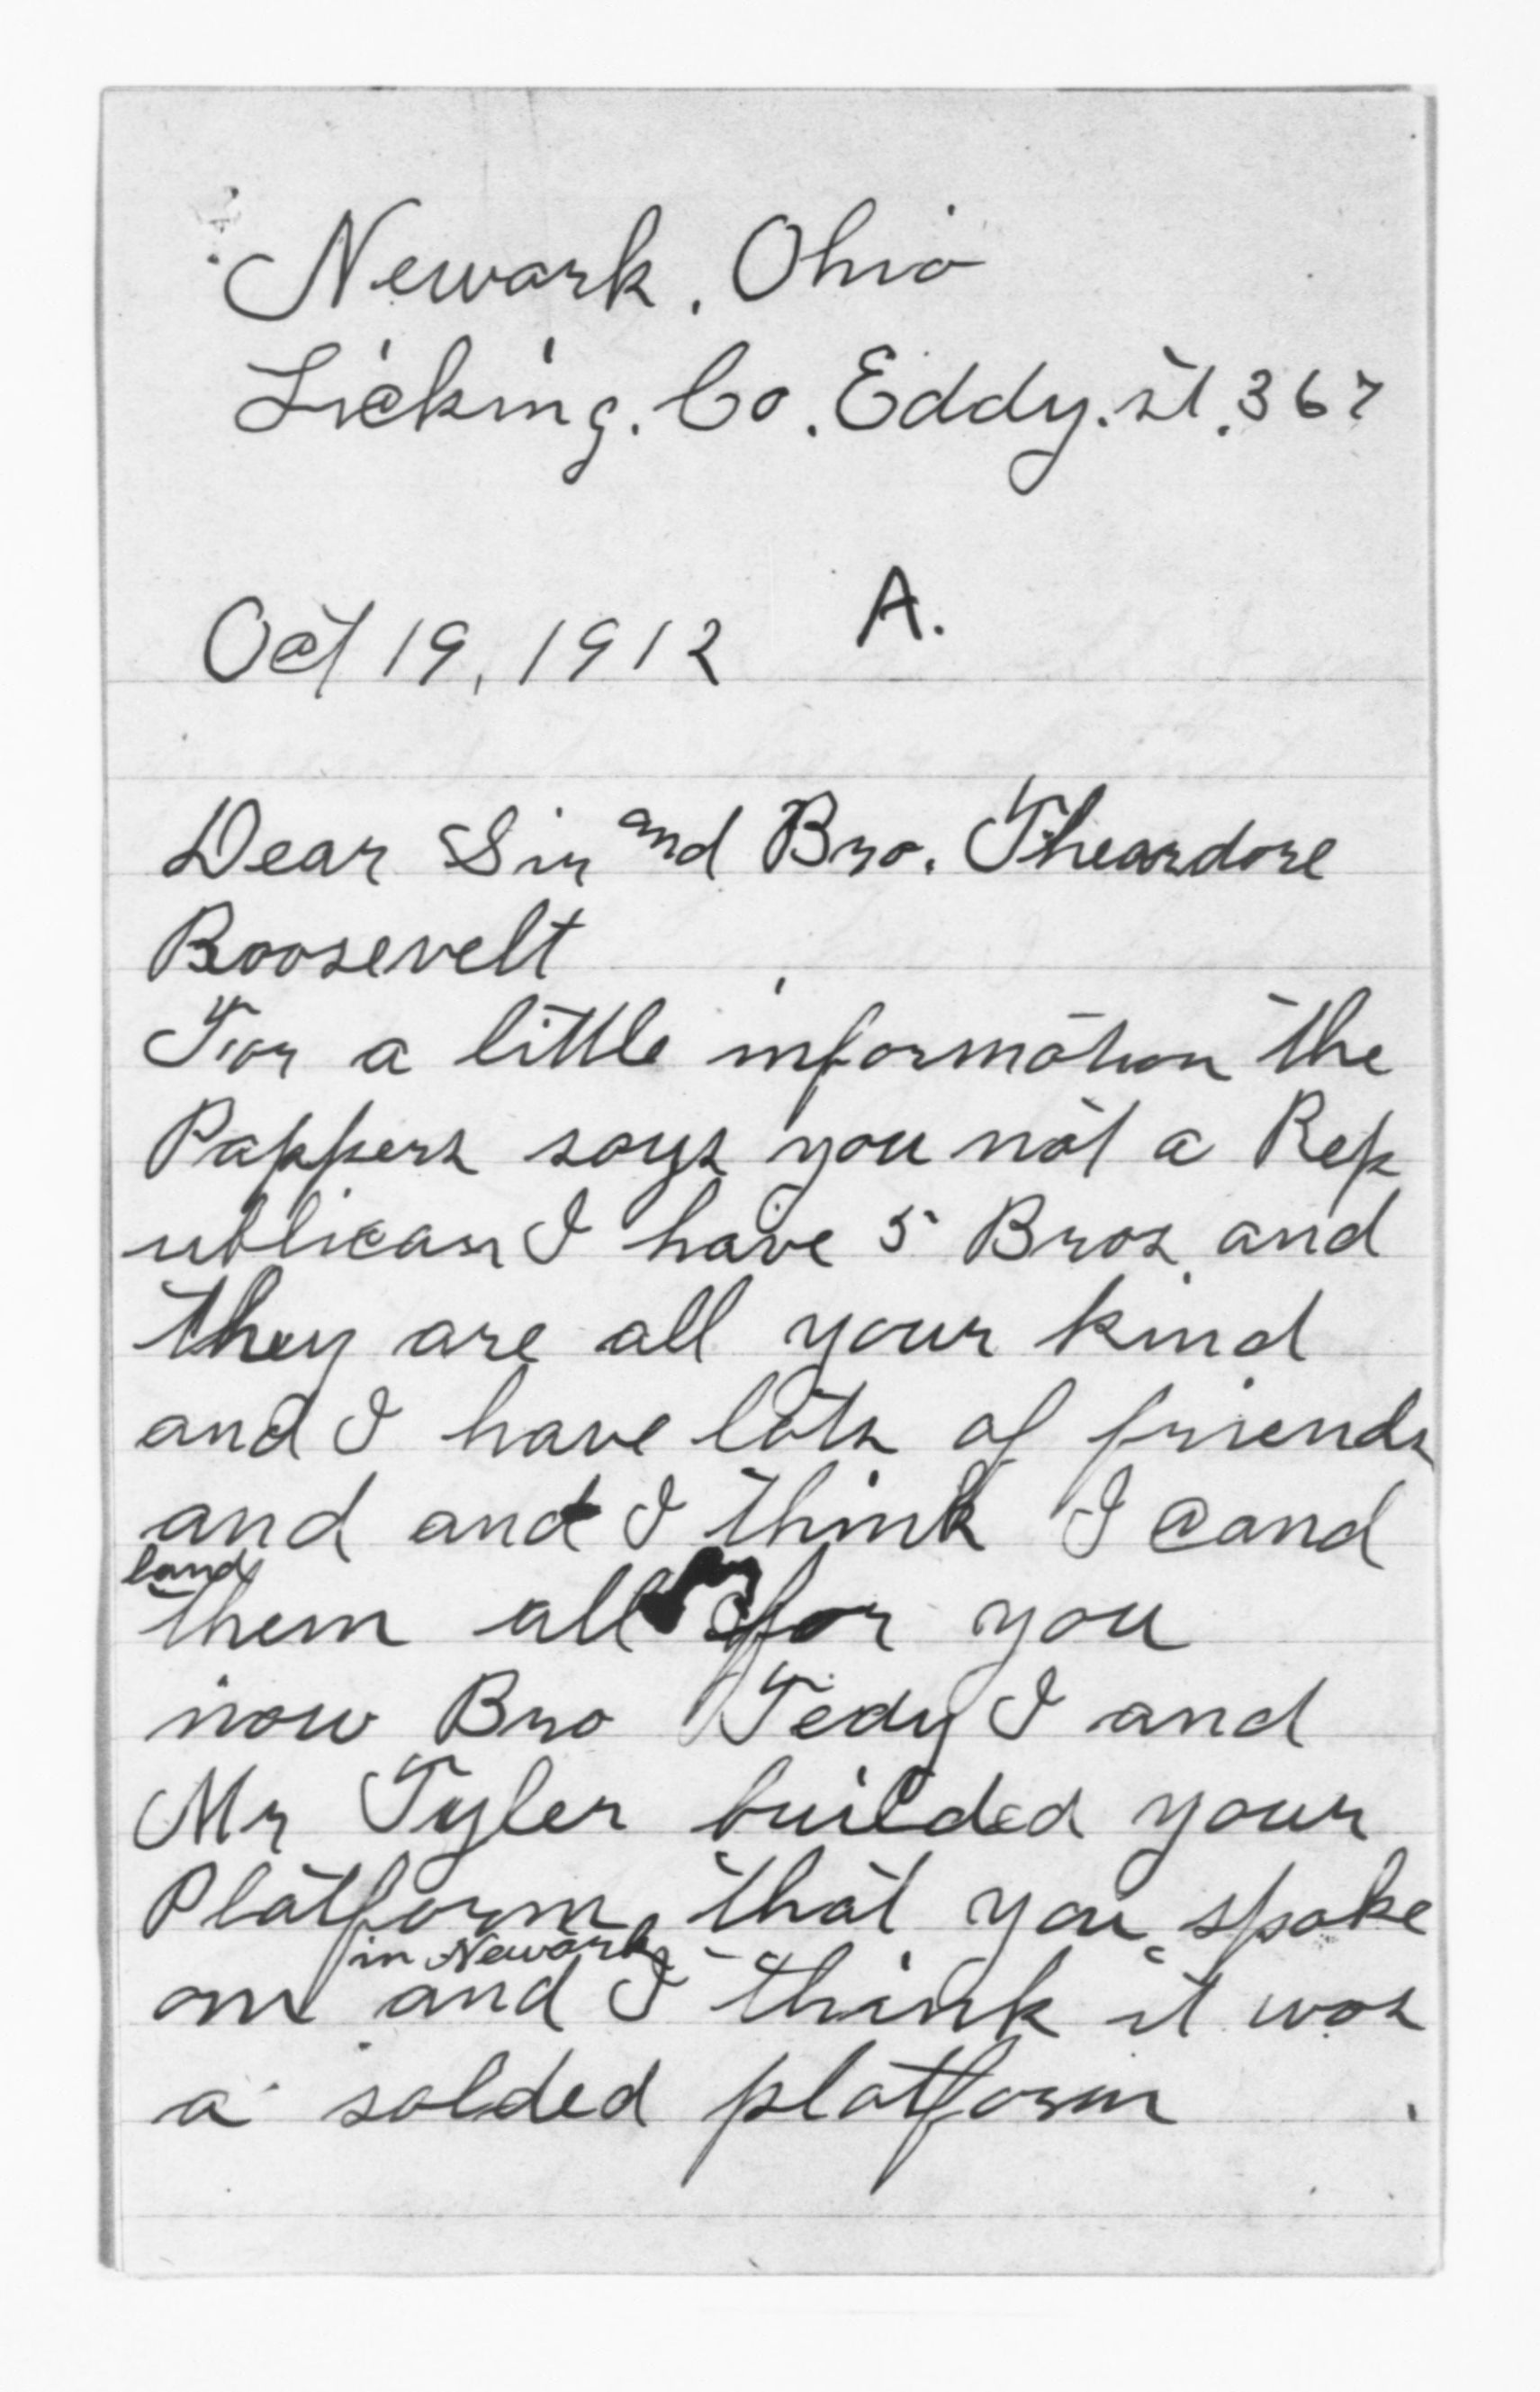 Newark, Ohio
Licking. Co. Eddy. st. 367
Oct 19, 1912 A.
Dear Sir and Bro. Theardore
Roosevelt
For a little information the
Pappers says you not a Rep
ublican I have 5 Bros. and
they are all your kind
and I have lots of friends
and and I think I cand
land
them all for you
now Bro Tedy I and
Mr Tyler builded your
Platform, that you spoke
in Newark
on and I think it was
a solded platform